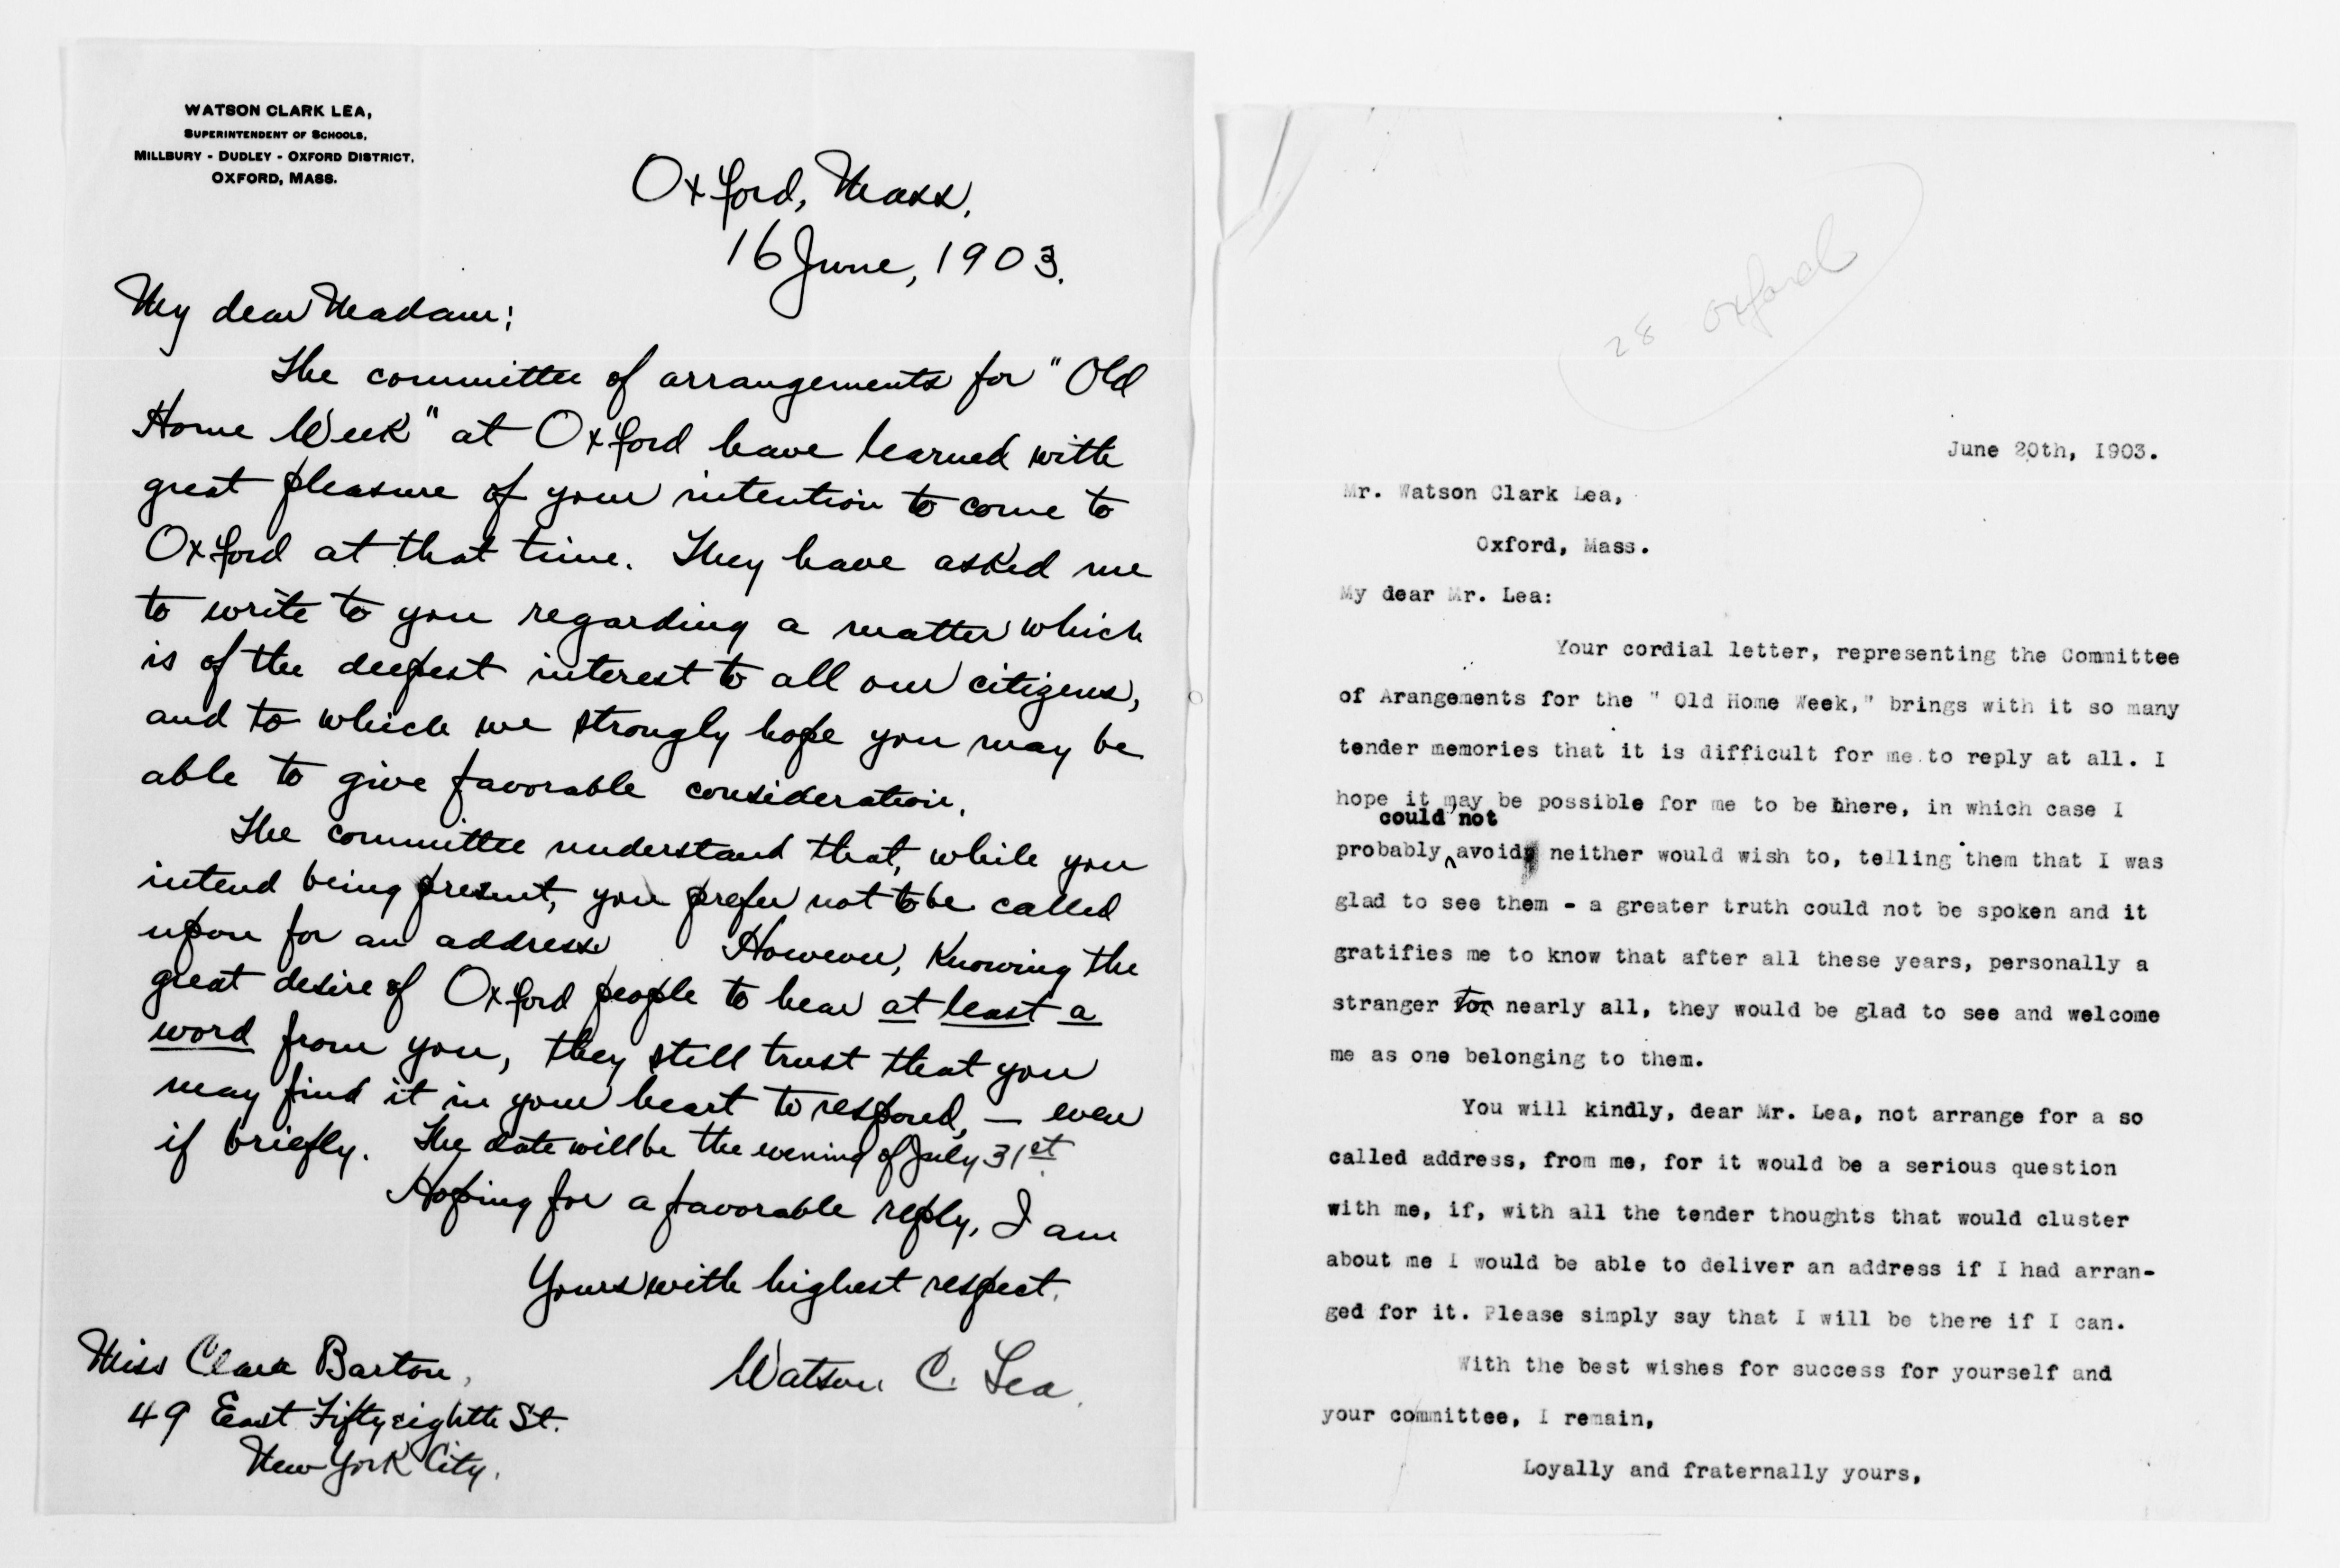 WATSON CLARK LEA,
SUPERINTENDENT OF SCHOOLS,
MILLBURY - DUDLEY - OXFORD DISTRICT,
OXFORD, MASS.
Oxford, Mass.
16 June, 1903.
My dear Madam:
The committee of arrangements for "Old
Home Week" at Oxford have learned with
great pleasure of your intention to come to
Oxford at that time. They have asked me
to write to you regarding a matter which
is of the deepest interest to all our citizens,
and to which we strongly hope you may be
able to give favorable consideration.
The committee understand that, while you
intend being present, you prefer not to be called
upon for an address. However, knowing the
great desire of Oxford people to hear at least a
word from you, they still trust that you
may find it in your heart to respond, — even
if briefly. The date will be the evening of July 31st.
Hoping for a favorable reply, I am
Yours with highest respect.
Watson C. Lea.
Miss Clara Barton,
49 East Fifty eighth St.
New York City.
28 Oxford
June 20th, I903.
Mr. Watson Clark Lea,
Oxford, Mass.
My dear Mr. Lea:
Your cordial letter, representing the Committee
of Arangements for the " Old Home Week," brings with it so many
tender memories that it is difficult for me to reply at all. I
hope it may be possible for me to be there, in which case I
could not
probably avoid, neither would wish to, telling them that I was
glad to see them - a greater truth could not be spoken and it
gratifies me to know that after all these years, personally a
stranger to nearly all, they would be glad to see and welcome
me as one belonging to them.
You will kindly, dear Mr. Lea, not arrange for a so
called address, from me, for it would be a serious question
with me, if, with all the tender thoughts that would cluster
about me I would be able to deliver an address if I had arran-
ged for it. Please simply say that I will be there if I can.
With the best wishes for success for yourself and
your committee, I remain,
Loyally and fraternally yours,